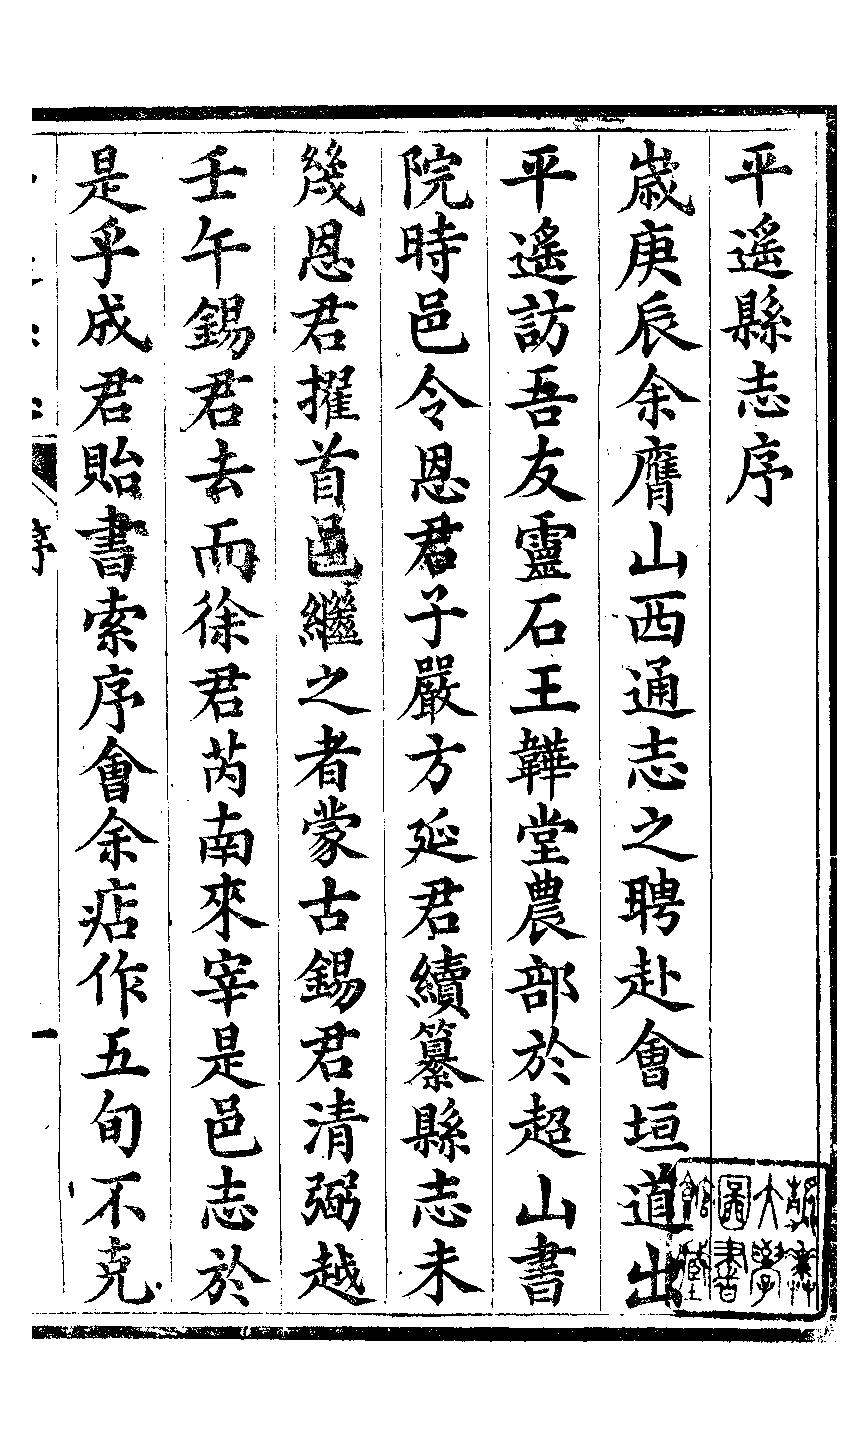 平遙縣志序
歲庚辰余膺山西通志之聘赴會垣道出
平遙訪吾友靈石王鞾堂農部於超山書
院時邑令恩君子嚴方延君續纂縣志未
幾恩君擢首邑繼之者蒙古錫君清弼越
壬午錫君去而徐君芮南來宰是邑志於
是乎成君貽書索序會余痁作五旬不克
序
一
大學
圖書
館藏